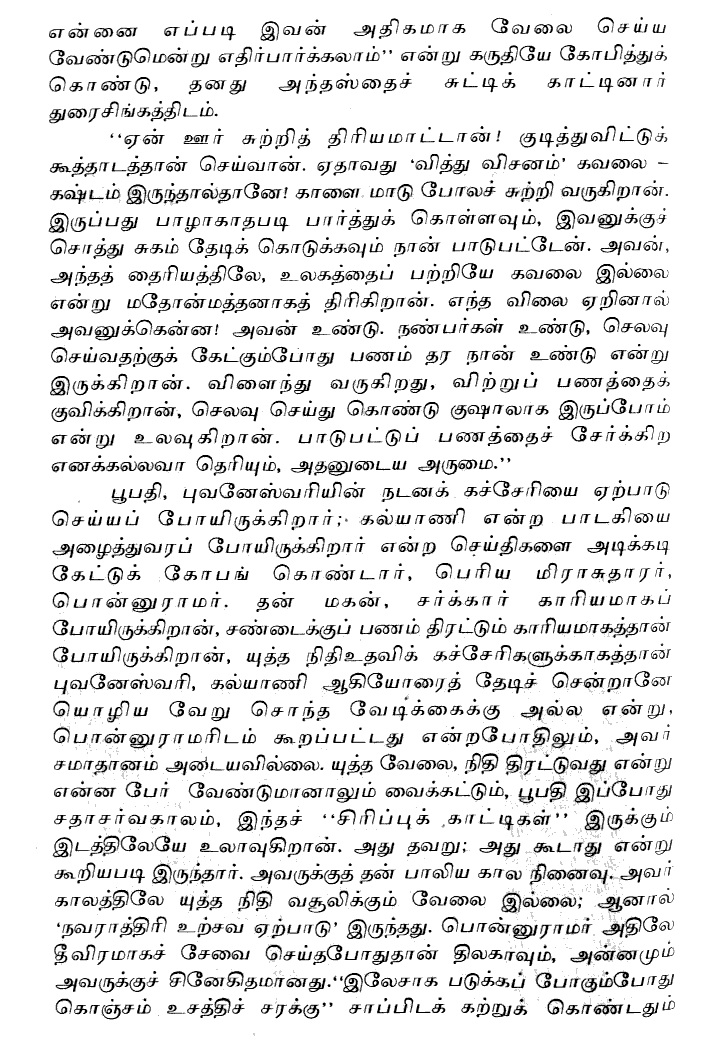 என்னை எப்படி இவன் அதிகமாக வேலை செய்ய
வேண்டுமென்று எதிர்பார்க்கலாம்'' என்று கருதியே கோபித்துக்
கொண்டு, தனது அந்தஸ்தைச் சுட்டிக் காட்டினார்
துரைசிங்கத்திடம்.
''ஏன் ஊர் சுற்றித் திரியமாட்டான்! குடித்துவிட்டுக்
கூத்தாடத்தான் செய்வான். ஏதாவது 'வித்து விசனம்' கவலை –
கஷ்டம் இருந்தால்தானே! காளை மாடு போலச் சுற்றி வருகிறான்.
இருப்பது பாழாகாதபடி பார்த்துக் கொள்ளவும், இவனுக்குச்
சொத்து சுகம் தேடிக் கொடுக்கவும் நான் பாடுபட்டேன். அவன்,
அந்தத் தைரியத்திலே, உலகத்தைப் பற்றியே கவலை இல்லை
என்று மதோன்மத்தனாகத் திரிகிறான். எந்த விலை ஏறினால்
அவனுக்கென்ன! அவன் உண்டு. நண்பர்கள் உண்டு, செலவு
செய்வதற்குக் கேட்கும்போது பணம் தர நான் உண்டு என்று
இருக்கிறான். விளைந்து வருகிறது, விற்றுப் பணத்தைக்
குவிக்கிறான், செலவு செய்து கொண்டு குஷாலாக இருப்போம்
என்று உலவுகிறான். பாடுபட்டுப் பணத்தைச் சேர்க்கிற
எனக்கல்லவா தெரியும், அதனுடைய அருமை.''
பூபதி, புவனேஸ்வரியின் நடனக் கச்சேரியை ஏற்பாடு
செய்யப் போயிருக்கிறார்; கல்யாணி என்ற பாடகியை
அழைத்துவரப் போயிருக்கிறார் என்ற செய்திகளை அடிக்கடி
கேட்டுக் கோபங் கொண்டார், பெரிய மிராசுதாரர்,
பொன்னுராமர். தன் மகன், சர்க்கார் காரியமாகப்
போயிருக்கிறான், சண்டைக்குப் பணம் திரட்டும் காரியமாகத்தான்
போயிருக்கிறான், யுத்த நிதிஉதவிக் கச்சேரிகளுக்காகத்தான்
புவனேஸ்வரி, கல்யாணி ஆகியோரைத் தேடிச் சென்றானே
யொழிய வேறு சொந்த வேடிக்கைக்கு அல்ல என்று,
பொன்னுராமரிடம் கூறப்பட்டது என்றபோதிலும், அவர்
சமாதானம் அடையவில்லை. யுத்த வேலை, நிதி திரட்டுவது என்று
என்ன பேர் வேண்டுமானாலும் வைக்கட்டும், பூபதி இப்போது
சதாசர்வகாலம், இந்தச் ''சிரிப்புக் காட்டிகள்'' இருக்கும்
இடத்திலேயே உலாவுகிறான். அது தவறு; அது கூடாது என்று
கூறியபடி இருந்தார். அவருக்குத் தன் பாலிய கால நினைவு. அவர்
காலத்திலே யுத்த நிதி வசூலிக்கும் வேலை இல்லை; ஆனால்
'நவராத்திரி உற்சவ ஏற்பாடு' இருந்தது. பொன்னுராமர் அதிலே
தீவிரமாகச் சேவை செய்தபோதுதான் திலகாவும், அன்னமும்
அவருக்குச் சினேகிதமானது.''இலேசாக படுக்கப் போகும்போது
கொஞ்சம் உசத்திச் சரக்கு'' சாப்பிடக் கற்றுக் கொண்டதும்